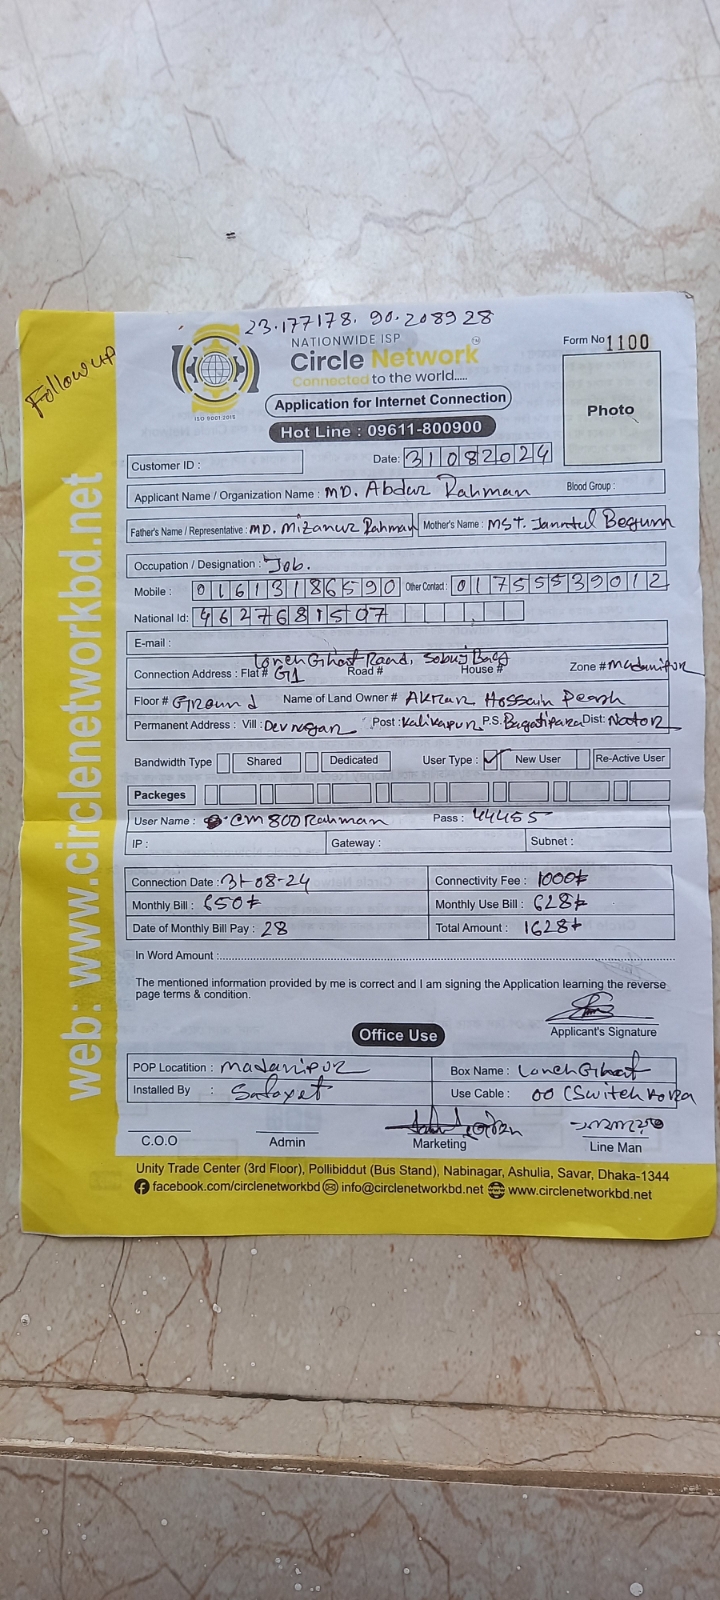 Follow up
23.177178. 90.208928
NATIONWIDE ISP
Circle Network
Connected to the world.....
ISO 9001:2015
Form No 1100
Application for Internet Connection
Hot Line : 09611-800900
Photo
Customer ID :
Date: 31082024
Applicant Name / Organization Name : MD. Abdur Rahman Blood Group :
Father's Name / Representative : MD. Mizanur Rahman Mother's Name : MST. Janntul Begum
Occupation / Designation : Job.
Mobile : 01613186590 Other Contact : 01755539012
National Id: 4627681507
E-mail :
Lonch Ghat Raod, Sobuj Bag
Connection Address : Flat # G1 Road # House # Zone # Madanipur
Floor # Ground Name of Land Owner # Akran Hossain
Permanent Address : Vill : Devnagar Post : Kalikapur P.S. Bagatipara Dist: Nator
Bandwidth Type Shared Dedicated User Type : ✓ New User Re-Active User
Packeges
User Name : cm800Rahman Pass : 44455
IP : Gateway : Subnet :
Connection Date : 31-08-24 Connectivity Fee : 1000৳
Monthly Bill : 650৳ Monthly Use Bill : 628৳
Date of Monthly Bill Pay : 28 Total Amount : 1628৳
In Word Amount :
The mentioned information provided by me is correct and I am signing the Application learning the reverse
page terms & condition.
Applicant's Signature
Office Use
POP Locatition : Madanipur Box Name : Lonch Ghat
Installed By : Safayet Use Cable : 00 (Switch
C.O.O Admin Marketing Line Man
Unity Trade Center (3rd Floor), Pollibiddut (Bus Stand), Nabinagar, Ashulia, Savar, Dhaka-1344
facebook.com/circlenetworkbd info@circlenetworkbd.net www.circlenetworkbd.net
web: www.circlenetworkbd.net